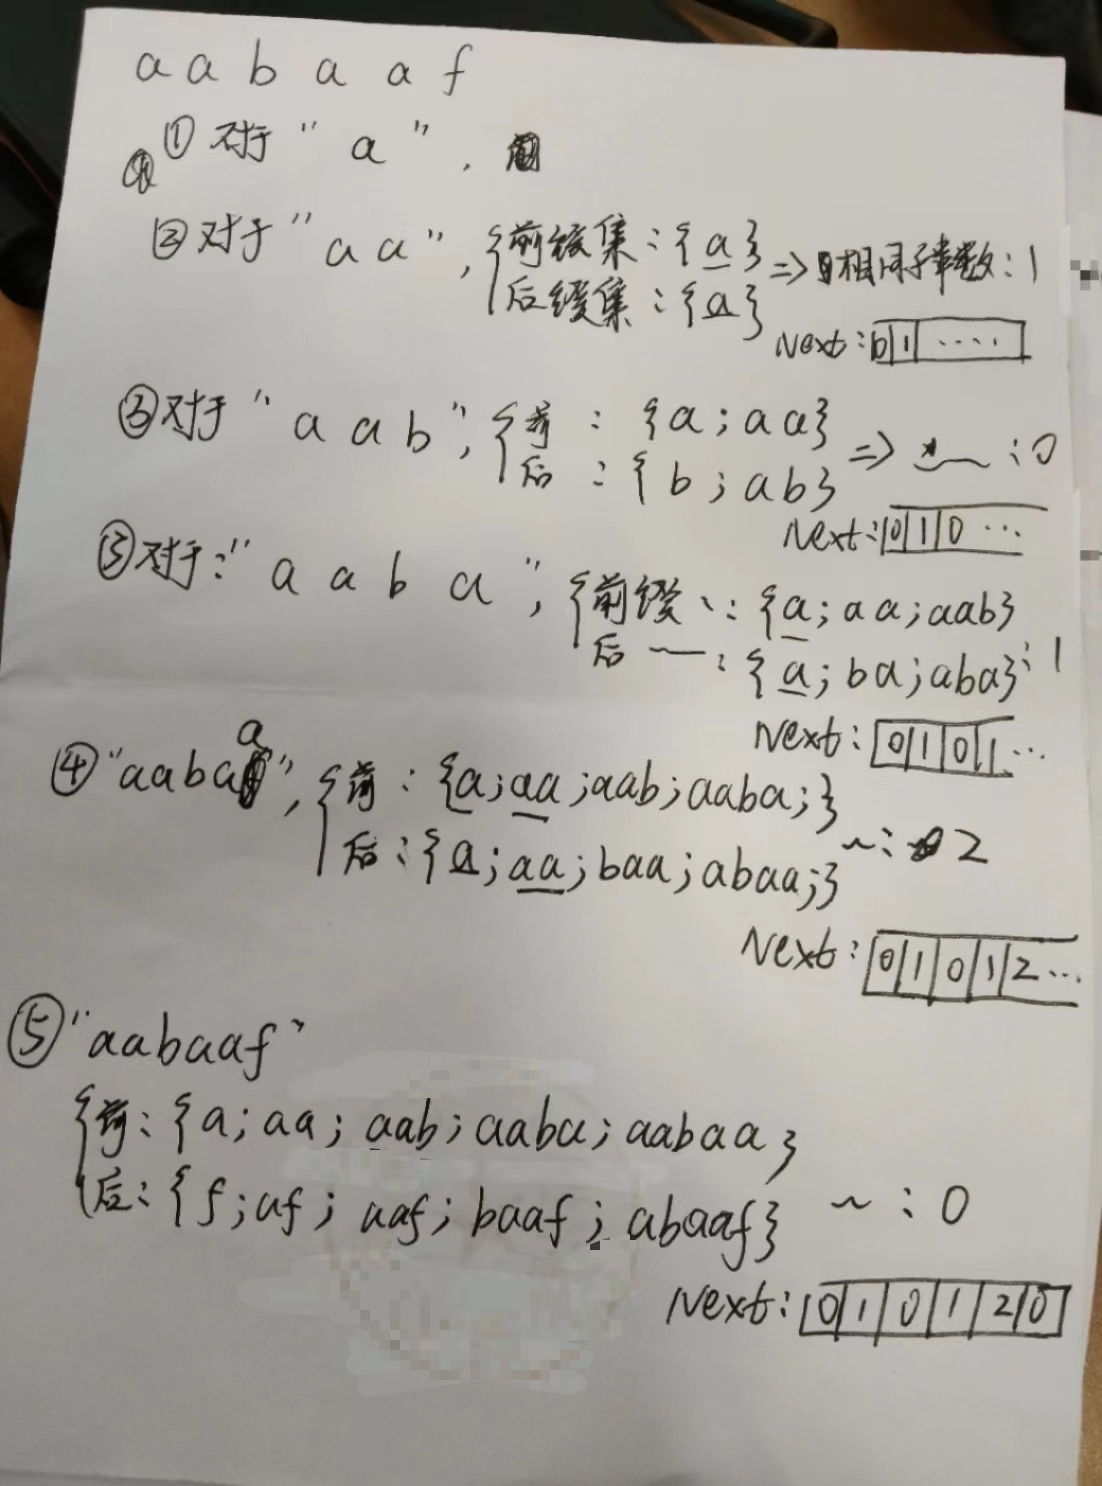 a a b a a f
① 对于 " a ",
② 对于 " a a ", { 前缀集 : {a} => 相同子串数 : 1
后缀集 : {a}
Next : 0 1 ....
③ 对于 " a a b ", { 前 : {a ; aa} => ~ : 0
后 : {b ; ab}
Next : 0 1 0 ...
③ 对于 : " a a b a ", { 前缀 ~ : {a ; aa ; aab}
后 ~ : {a ; ba ; aba} : 1
Next : 0 1 0 1 ...
④ "aabaa", { 前 : {a ; aa ; aab ; aaba ; }
后 : {a ; aa ; baa ; abaa ; } ~ : 2
Next : 0 1 0 1 2 ...
⑤ "aabaaf"
{ 前 : {a ; aa ; aab ; aaba ; aabaa }
后 : {f ; af ; aaf ; baaf ; abaaf} ~ : 0
Next : 0 1 0 1 2 0